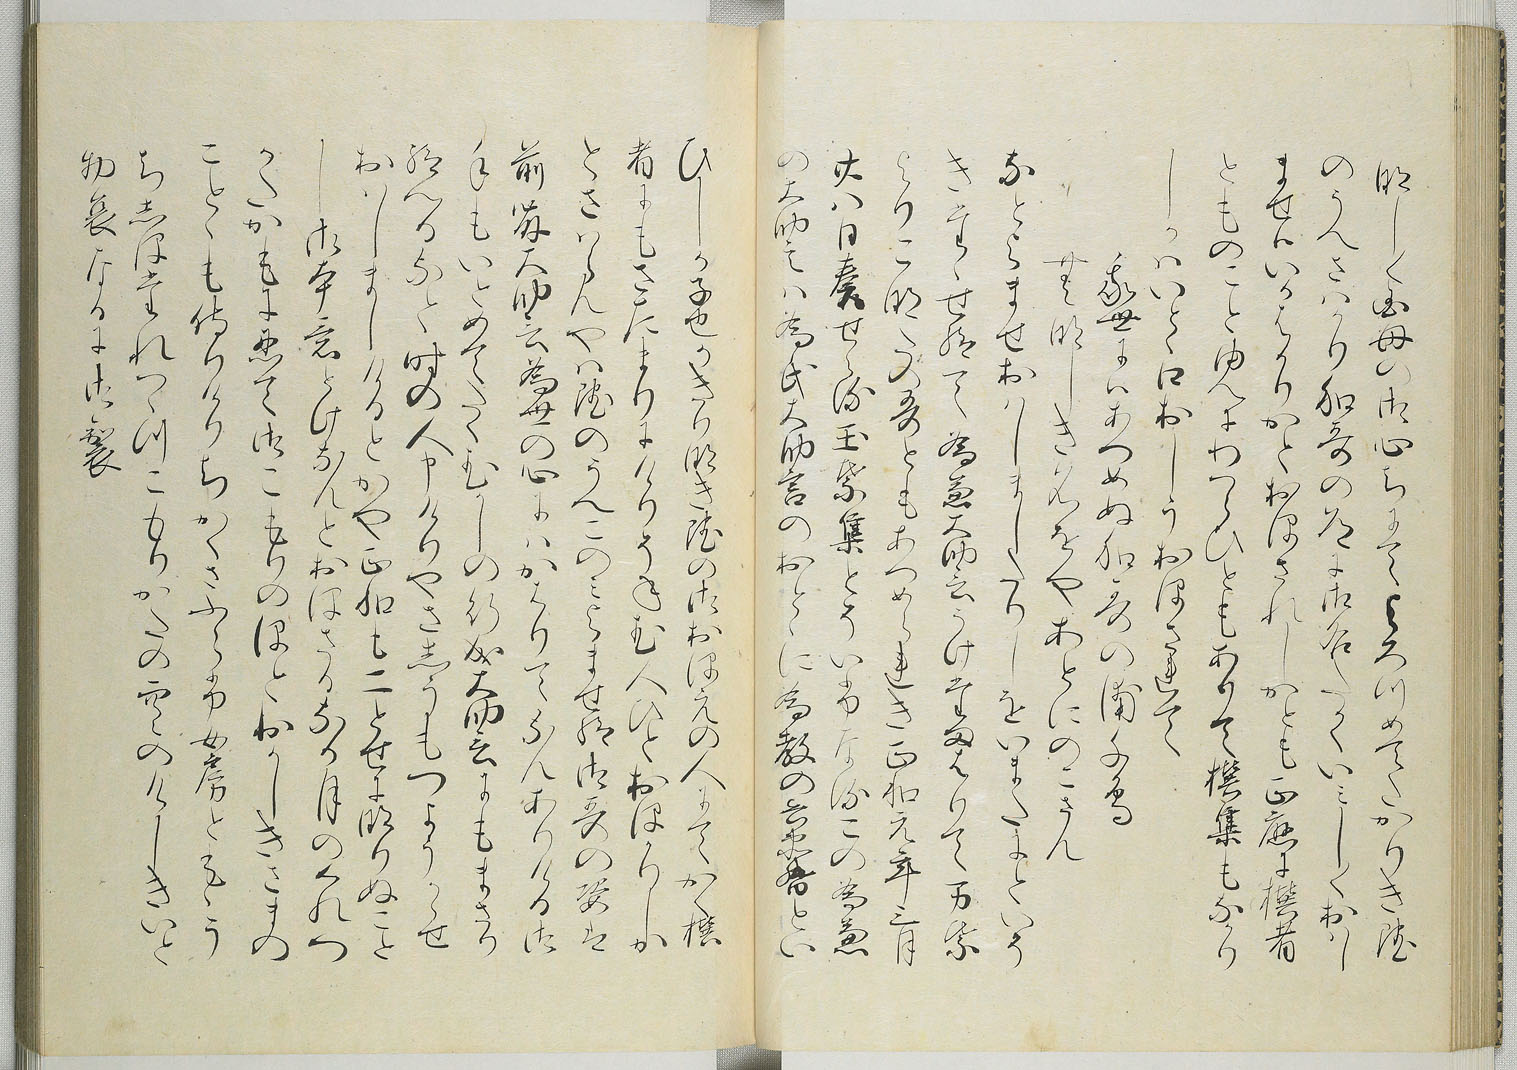 なしく国母の御心ちにてよろつめてたかりき院
のうへさはかり和哥の道に御名たかくいみしくおはし
ませはいかはかりかとおほされしかとも正応に撰者
とものことゆへにわつらひともありて撰集もなかり
しかはいとゝ口おしうおほされて
我世にはあつめぬ和哥の浦千鳥
むなしき名をやあとにのこさん
なとよませおはしましたりしをいまたにといそ
きたゝせ給て為兼大納言うけたまはりて万葉
よりこなたの哥ともあつめられき正和元年三月
廿八日奏せらる玉葉集とそいふなるこの為兼
の大納言は為氏大納言のおとゝに為教の兵衛督とい
ひしか子也かきりなき院の御おほえの人にてかく撰
者にもさたまりにけりそねむ人々おほかりしか
とさはらんやは院のうへこのみよませ給御哥の姿は
前藤大納言為世の心にはかはりてなんありける御
手もいとめてたくむかしの行成大納言にもまさり
給へるなと時の人申けりやさしうもつようもかゝせ
おはしましけるとかや正和も二とせになりぬこと
し御本意とけなんとおほさるなか月のくれつ
かたかもに忍て御こもりのほとおかしきさまの
ことゝも侍りけりちかくさふらふ女房ともう
ちしほたれつゝつこもりかたの空のけしきいと
物哀なるに御製